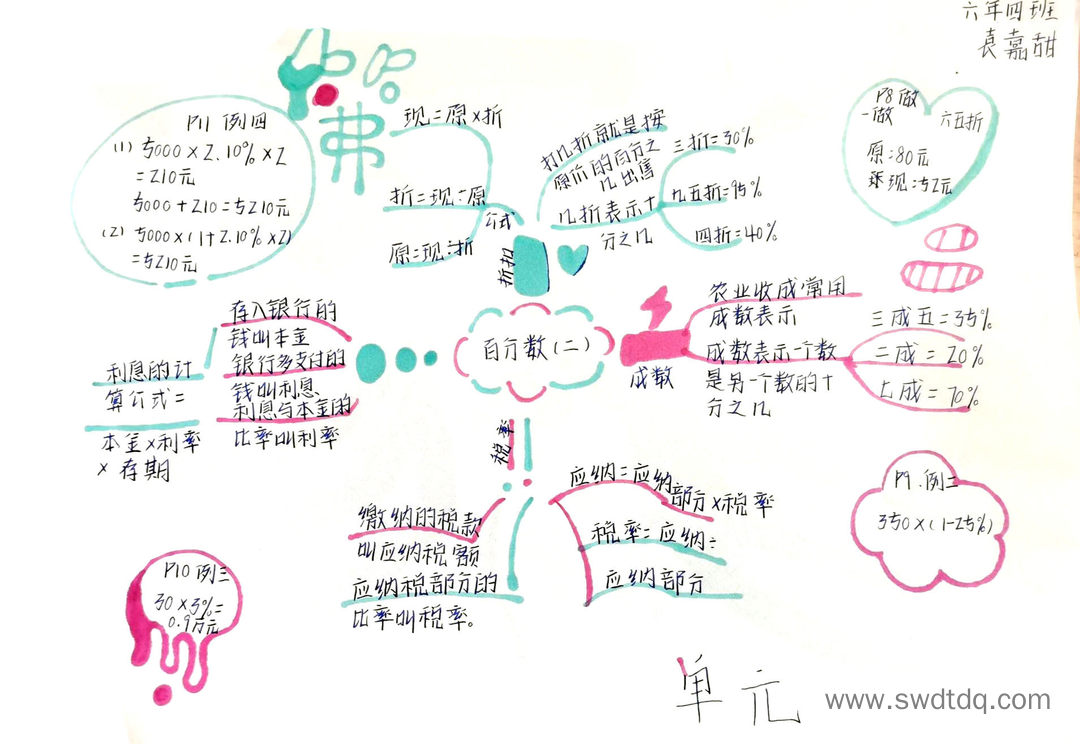 六年四班
袁嘉甜
P11 例四
(1) 5000×2.10%×2
=210元
5000+210=5210元
(2) 5000×(1+2.10%×2)
=5210元
现=原×折
折=现÷原
原=现÷折
公式
折扣
打几折就是按
原价的百分之
几出售
几折表示十
分之几
三折=30%
九五折=95%
四折=40%
P8做
一做
六五折
原:80元
现:52元
百分数(二)
成数
农业收成常用
成数表示
成数表示一个数
是另一个数的十
分之几
三成五=35%
二成=20%
七成=70%
存入银行的
钱叫本金
银行多支付的
钱叫利息
利息与本金的
比率叫利率
利息的计
算公式=
本金×利率
×存期
税率
缴纳的税款
叫应纳税额
应纳税部分的
比率叫税率。
应纳=应纳
部分×税率
税率=应纳÷
应纳部分
P9.例二
350×(1-25%)
P10例三
30×3%=
0.9万元
单元
www.swdtdq.com